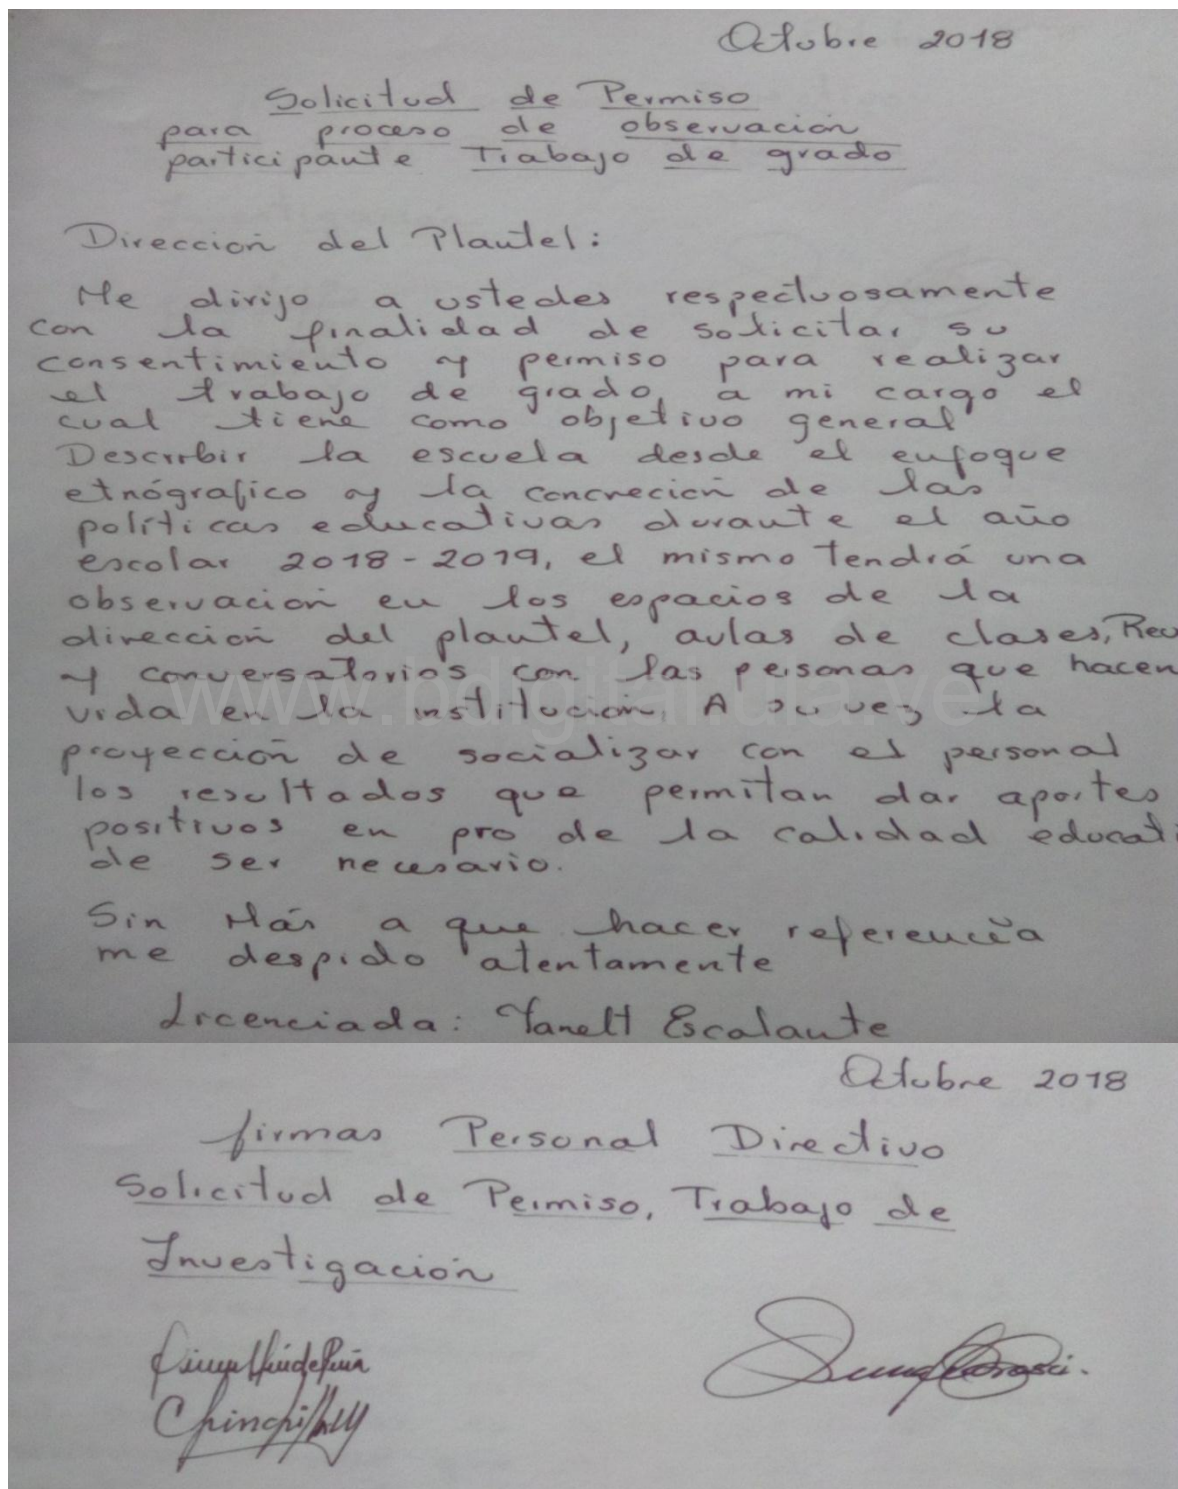 Octubre 2018
Solicitud de Permiso
para proceso de observación
participante Trabajo de grado
Dirección del Plantel:
Me dirijo a ustedes respectuosamente
con la finalidad de solicitar su
consentimiento y permiso para realizar
el trabajo de grado, a mi cargo el
cual tiene como objetivo general
Describir la escuela desde el enfoque
etnógrafico y la concreción de las
políticas educativas durante el año
escolar 2018-2019, el mismo tendrá una
observación en los espacios de la
dirección del plantel, aulas de clases, Rec
y conversatorios con las personas que hacen
vida en la institución, A su vez la
proyección de socializar con el personal
los resultados que permitan dar aportes
positivos en pro de la calidad educati
de ser necesario.
Sin Más a que hacer referencia
me despido atentamente
Licenciada: Yanett Escalante
www.bdigital.ula.ve
Octubre 2018
firmas Personal Directivo
Solicitud de Permiso, Trabajo de
Investigación